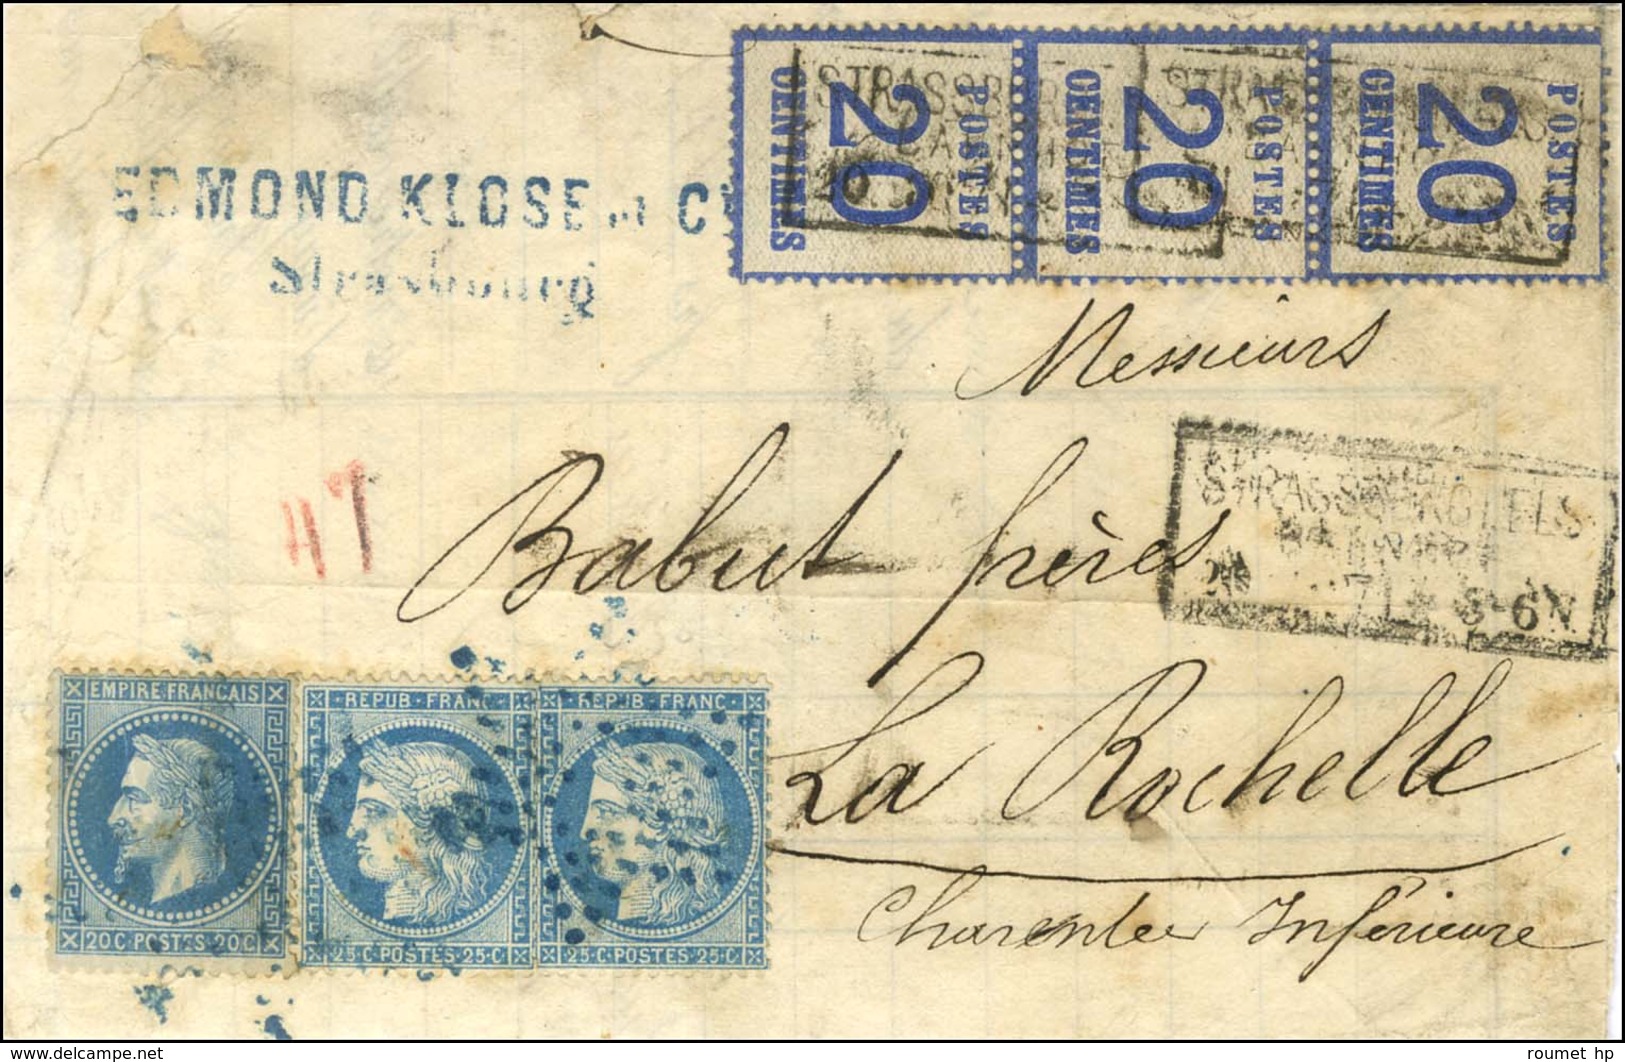 EDMOND KLOSE et C
Strasbourg
POSTES
20
CENTIMES
POSTES
20
CENTIMES
POSTES
20
CENTIMES
STRASSBURG
STRASSBURG
Messieurs
47
Babut frères
STRASSBURG I. ELS
71 * 5-6N
La Rochelle
Charente Inférieure
EMPIRE FRANCAIS
20 C. POSTES 20 C
REPUB. FRANC.
25 C. POSTES 25 C
REPUB. FRANC.
25 C. POSTES 25 C
www.delcampe.net
roumet hp